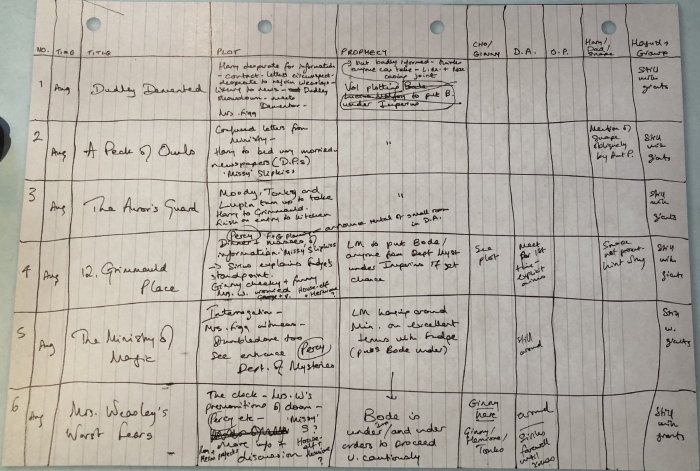 NO. TIME TITLE PLOT PROPHECY CHO/ GINNY D.A. O.P. Harry/ Dad/ Snape Hagrid + Grawp
1 Aug Dudley Demented
Harry desperate for information
- contact - letters circumspect -
desperate to rejoin Weasleys -
listens to news - Dudley
showdown - meets
Dementor -
Mrs. Figg
but badly informed -
anyone can take -
Vol plotting Bode
Lucius Malfoy to put B.
under Imperius
Still
with
giants
2 Aug A Peck of Owls
Confused letters from
Ministry -
Harry to bed
newspapers (D.P.s)
'Missy' Slipkiss
"
Mention of
Snape
obliquely
by Aunt P.
Still
with
giants
3 Aug The Auror's Guard
Moody, Tonks and
Lupin turn up to take
Harry to Grimmauld.
finish on entry to kitchen
"
Still
with
giants
4 Aug 12, Grimmauld
Place
Percy F+G planning - announce rental of small room
in D.A.
Dinner +
information. Missy Slipkiss
→ Sirius explains Fudge's
standpoint.
Ginny cheeky + funny
Mrs. W. worried
House-elf
+ Hermione?
LM to put Bode/
anyone from Dept Myst
under Imperius if get
chance
See
plot
Meet
for 1st
time -
explicit
aims
Snape
not present.
hint
Still
with
giants
5 Aug The Ministry of
Magic
Interrogation -
Mrs. Figg witness -
Dumbledore too
See entrance Percy
Dept. of Mysteries
LM hanging around
Min. on excellent
terms with Fudge
(puts Bode under)
still
around
Still
w.
giants
6 Aug Mrs. Weasley's
Worst Fears
The clock - Mrs. W's
premonitions of doom -
Percy etc - 'Missy'
S?
more info +
discussion
House-
elf?
Hermione
?
Bode is
under and under
orders to proceed
v. cautiously
Ginny
here
Ginny/
Hermione/
Tonks
around
Sirius
farewell
until
xmas
Still
with
giants